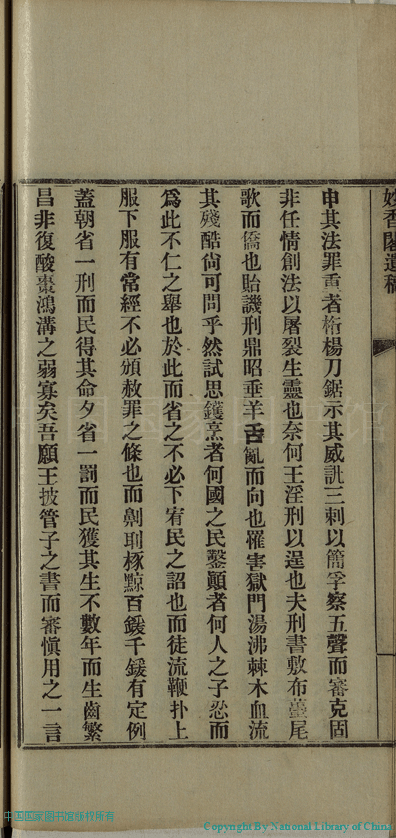 妙香閣遺稿
申其法罪重者桁楊刀鋸示其威訊三刺以簡孚察五聲而審克固
非任情創法以屠裂生靈也奈何王淫刑以逞也夫刑書敷布蠆尾
歌而僑也貽譏刑鼎昭垂羊舌亂而向也罹害獄門湯沸棘木血流
其殘酷尚可問乎然試思鑊烹者何國之民鑿顛者何人之子忍而
為此不仁之舉也於此而省之不必下宥民之詔也而徒流鞭扑上
服下服有常經不必頒赦罪之條也而劓刵椓黥百鍰千鍰有定例
蓋朝省一刑而民得其命夕省一罰而民獲其生不數年而生齒繁
昌非復酸棗鴻溝之弱寡矣吾願王披管子之書而審慎用之一言
中国国家图书馆版权所有
Copyright By National Library of China